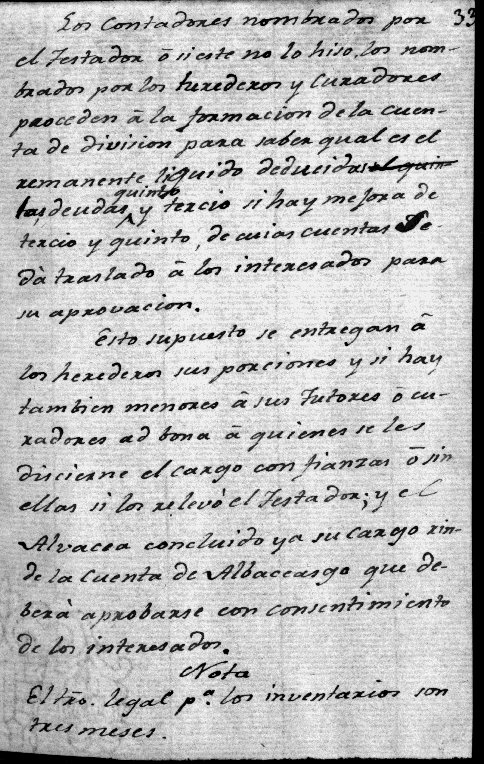 33
Los Contadores nombrados por
el Testador ō si este no lo hiso, los nom-
brados por los herederos y Curadores
proceden â la formacion de la cuen-
ta de division para saber qual es el
remanente liquido deducidas el quin-
las, deudas quinto y tercio si hay mejora de
tercio y quinto, de cuias cuentas Se
dà traslado â los interesados para
su aprovacion.
Esto supuesto se entregan â
los herederos sus porciones y si hay
tambien menores â sus Tutores ō cu-
radores ad bona â quienes se les
discierne el cargo con fianzas ō sin
ellas si los relevó el Testador; y el
Alvacea concluido ya su Cargo rin-
de la Cuenta de Albaceasgo que de-
berà aprobarse con consentimiento
de los interesados.
Nota
El tr̃o. legal pᵃ. los inventarios son
tres meses.